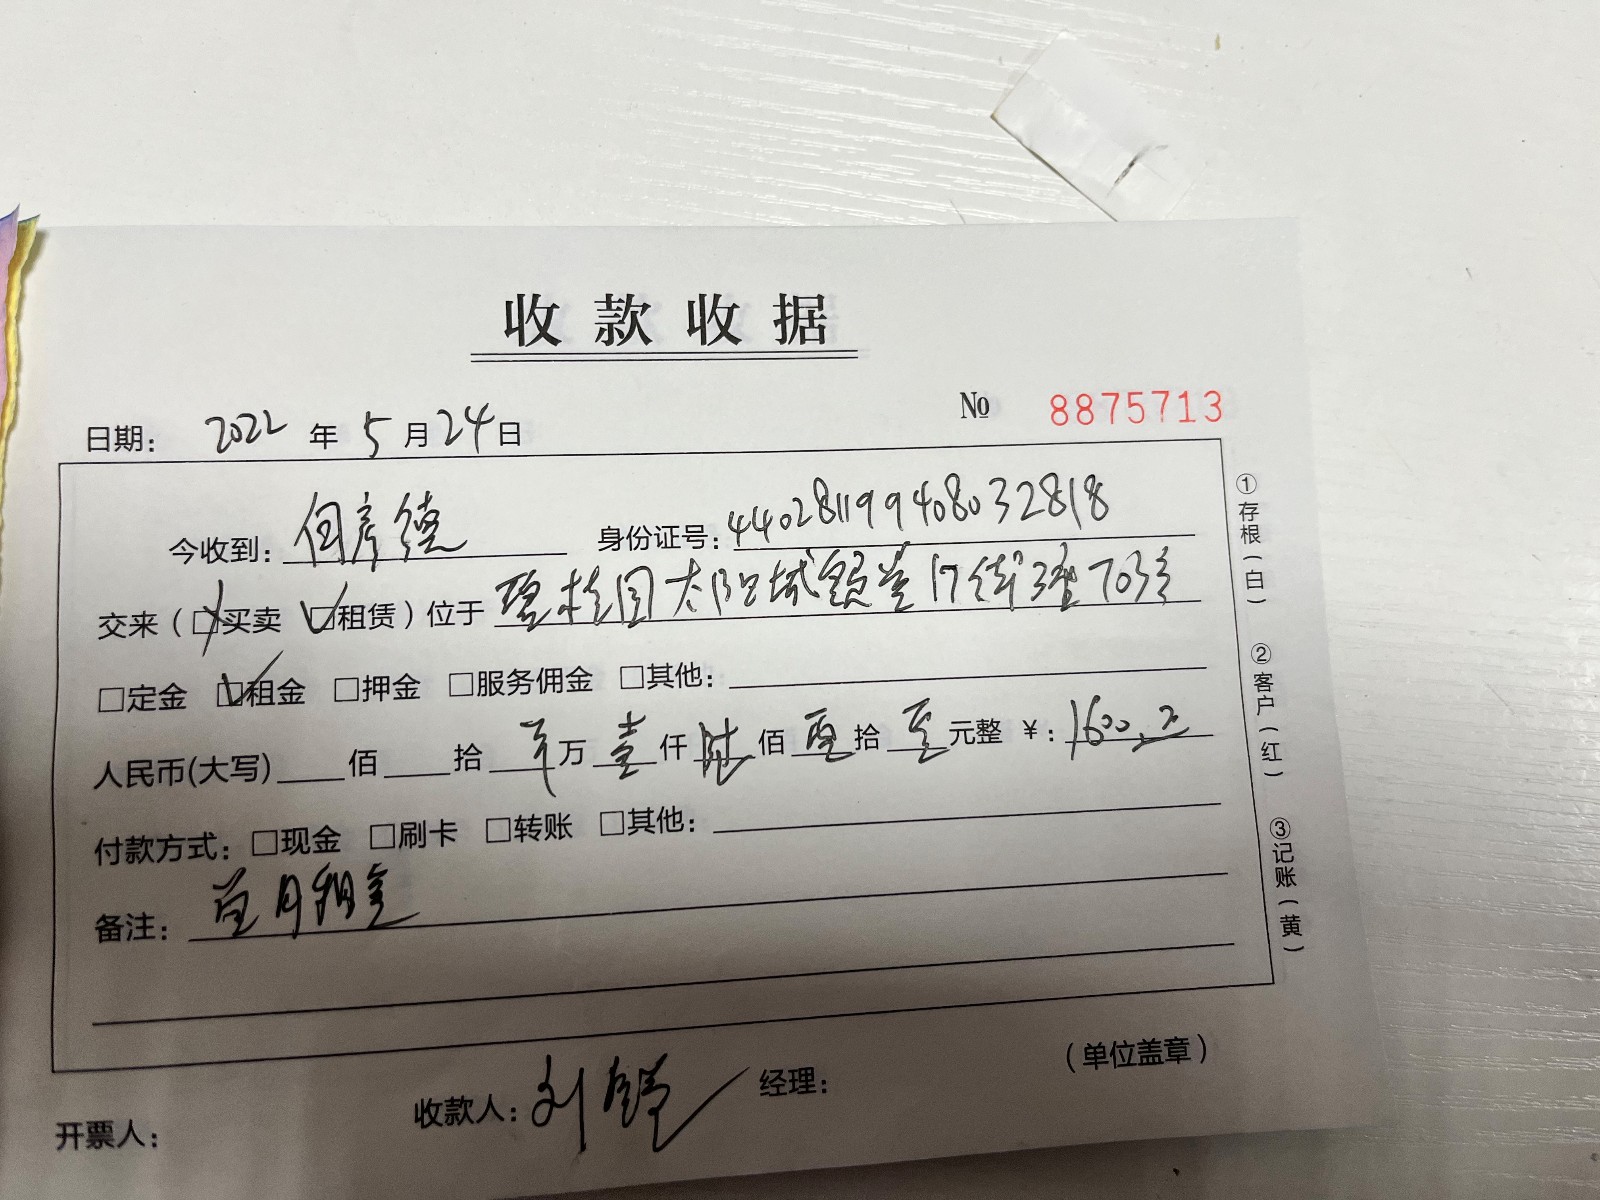 收款收据
日期: 2022 年 5 月 24 日 № 8875713
今收到: 何彦德 身份证号: 440281199408032818
交来(□买卖 ☑租赁)位于 碧桂园太阳城颐 17街 703
□定金 ☑租金 □押金 □服务佣金 □其他:
人民币(大写) 佰 拾 万 壹 仟 陆 佰 零 拾 零 元整 ¥: 1600.
付款方式: □现金 □刷卡 □转账 □其他:
备注: 首月租金
收款人: 刘 经理: (单位盖章)
开票人:
①存根(白) ②客户(红) ③记账(黄)